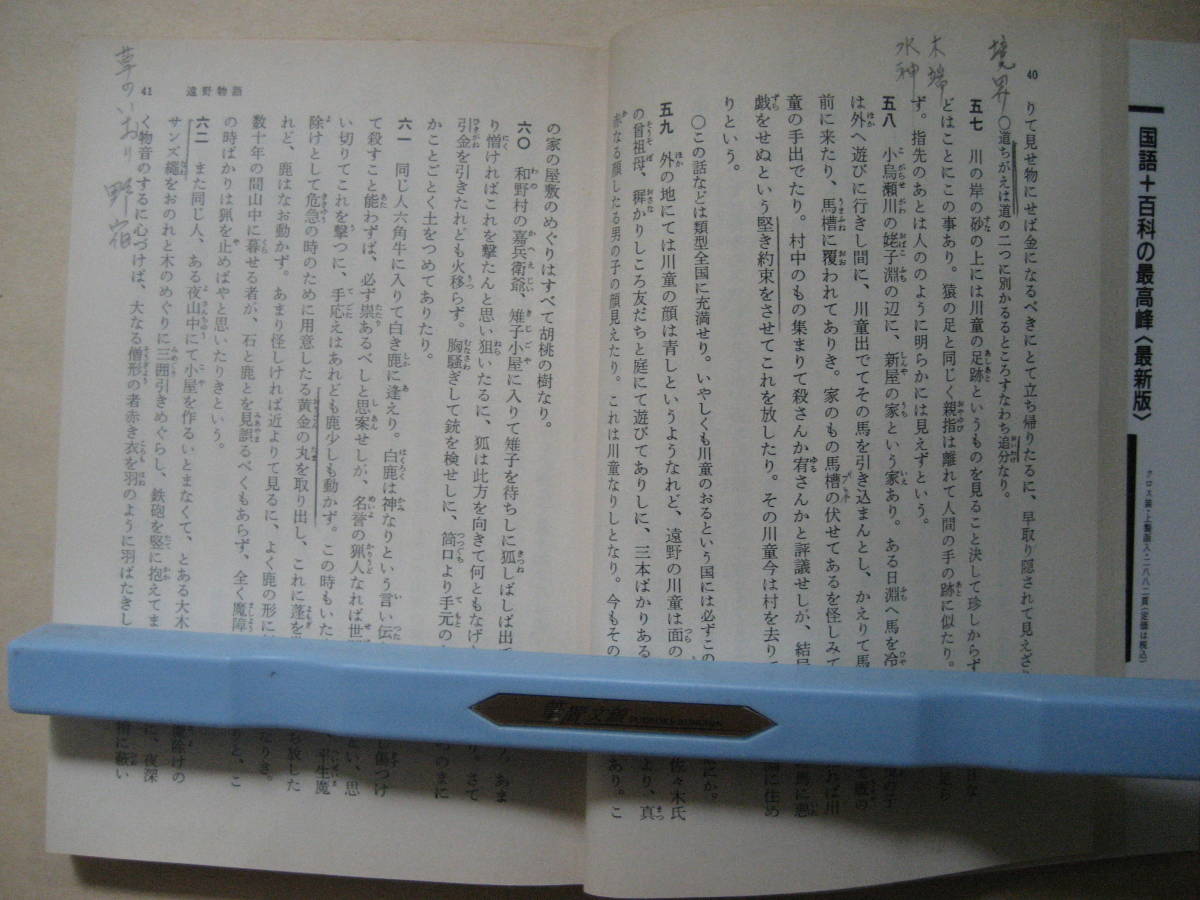 国語+百科の最高峰〈最新版〉
クロス装・上製函入・二八八二頁(定価は税込)
境界
木端
水神
40
りて見せ物にせば金になるべきにとて立ち帰りたるに、早取り隠されて見えざ
〇道ちがえは道の二つに別かるるところすなわち追分なり。
五七 川の岸の砂の上には川童の足跡というものを見ること決して珍しからず
どはことにこの事あり。猿の足と同じく親指は離れて人間の手の跡に似たり。
ず。指先のあとは人ののように明らかには見えずという。
五八 小烏瀬川の姥子淵の辺に、新屋の家という家あり。ある日淵へ馬を冷
は外へ遊びに行きし間に、川童出でてその馬を引き込まんとし、かえりて馬
前に来たり、馬槽に覆われてありき。家のもの馬槽の伏せてあるを怪しみて
れば川
童の手出でたり。村中のもの集まりて殺さんか宥さんかと評議せしが、結局
馬に悪
戯をせぬという堅き約束をさせてこれを放したり。その川童今は村を去りて
に住め
りという。
〇この話などは類型全国に充満せり。いやしくも川童のおるという国には必ずこの
五九 外の地にては川童の顔は青しというようなれど、遠野の川童は面の
佐々木氏
の曾祖母、穉かりしころ友だちと庭にて遊びてありしに、三本ばかりある
より、真
赤なる顔したる男の子の顔見えたり。これは川童なりしとなり。今もその
あり。こ
41 遠野物語
草のいおり 野宿
の家の屋敷のめぐりはすべて胡桃の樹なり。
六〇 和野村の嘉兵衛爺、雉子小屋に入りて雉子を待ちしに狐しばしば出て
あま
り憎ければこれを撃たんと思い狙いたるに、狐は此方を向きて何ともなげ
さて
引金を引きたれども火移らず。胸騒ぎして銃を検せしに、筒口より手元の
つのまに
かことごとく土をつめてありたり。
六一 同じ人六角牛に入りて白き鹿に逢えり。白鹿は神なりという言い伝
傷つけ
て殺すこと能わずば、必ず祟あるべしと思案せしが、名誉の猟人なれば世間
い、思
い切りてこれを撃つに、手応えはあれども鹿少しも動かず。この時もいた
生魔
除けとして危急の時のために用意したる黄金の丸を取り出し、これに蓬を
ち放した
れど、鹿はなお動かず。あまり怪しければ近よりて見るに、よく鹿の形に
たりき。
数十年の間山中に暮せる者が、石と鹿とを見誤るべくもあらず、全く魔障
りと、こ
の時ばかりは猟を止めばやと思いたりきという。
六二 また同じ人、ある夜山中にて小屋を作るいとまなくて、とある大木
除けの
サンズ縄をおのれと木のめぐりに三囲引きめぐらし、鉄砲を竪に抱えてま
に、夜深
く物音のするに心づけば、大なる僧形の者赤き衣を羽のように羽ばたきし
に蔽い